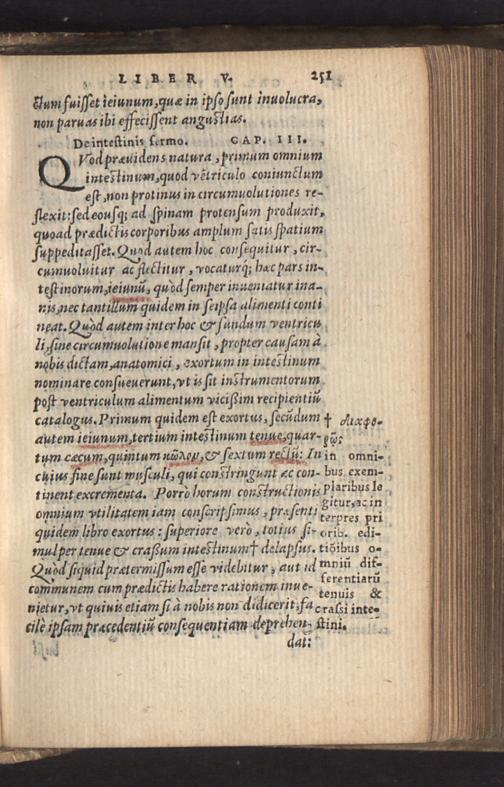 LIBER V. 251
ctum fuisset ieiunum, quæ in ipso sunt inuolucra,
non paruas ibi effecissent angustias.
De intestinis sermo. CAP. III.
QVod præuidens natura, primum omnium
intestinum, quod vētriculo coniunctum
est, non protinus in circumuolutiones re-
flexit: sed eousq; ad spinam protensum produxit,
quoad prædictis corporibus amplum satis spatium
suppeditasset. Quod autem hoc consequitur, cir-
cumuoluitur ac flectitur, vocaturq́; hæc pars in-
testinorum, ieiunū, quòd semper inueniatur ina-
nis, nec tantillum quidem in seipsa alimenti conti
neat. Quòd autem inter hoc & fundum ventricu
li, sine circumuolutione mansit, propter causam à
nobis dictam, anatomici, exortum in intestinum
nominare consueuerunt, vt is sit instrumentorum
post ventriculum alimentum vicißim recipientiū
catalogus. Primum quidem est exortus, secūdum
autem ieiunum, tertium intestinum tenue, quar-
tum cæcum, quintum κῶλον, & sextum rectū: In
cuius fine sunt musculi, qui constringunt ac con-
tinent excrementa. Porrò horum constructionis
omnium vtilitatem iam conscripsimus, præsenti
quidem libro exortus: superiore verò, totius si-
mul per tenue & crassum intestinum† delapsus.
Quòd siquid prætermissum esse videbitur, aut id
communem cum prædictis habere rationem inue-
nietur, vt quiuis etiam si à nobis non didicerit, fa
cilè ipsam præcedentiū consequentiam deprehen-
dat:
† διαφο-
ρῶ:
in omni-
bus exem-
plaribus le
gitur, ac in
terpres pri
orib. edi-
tiōibus o-
mniū dif-
ferentiarū
tenuis &
crassi inte-
stini.